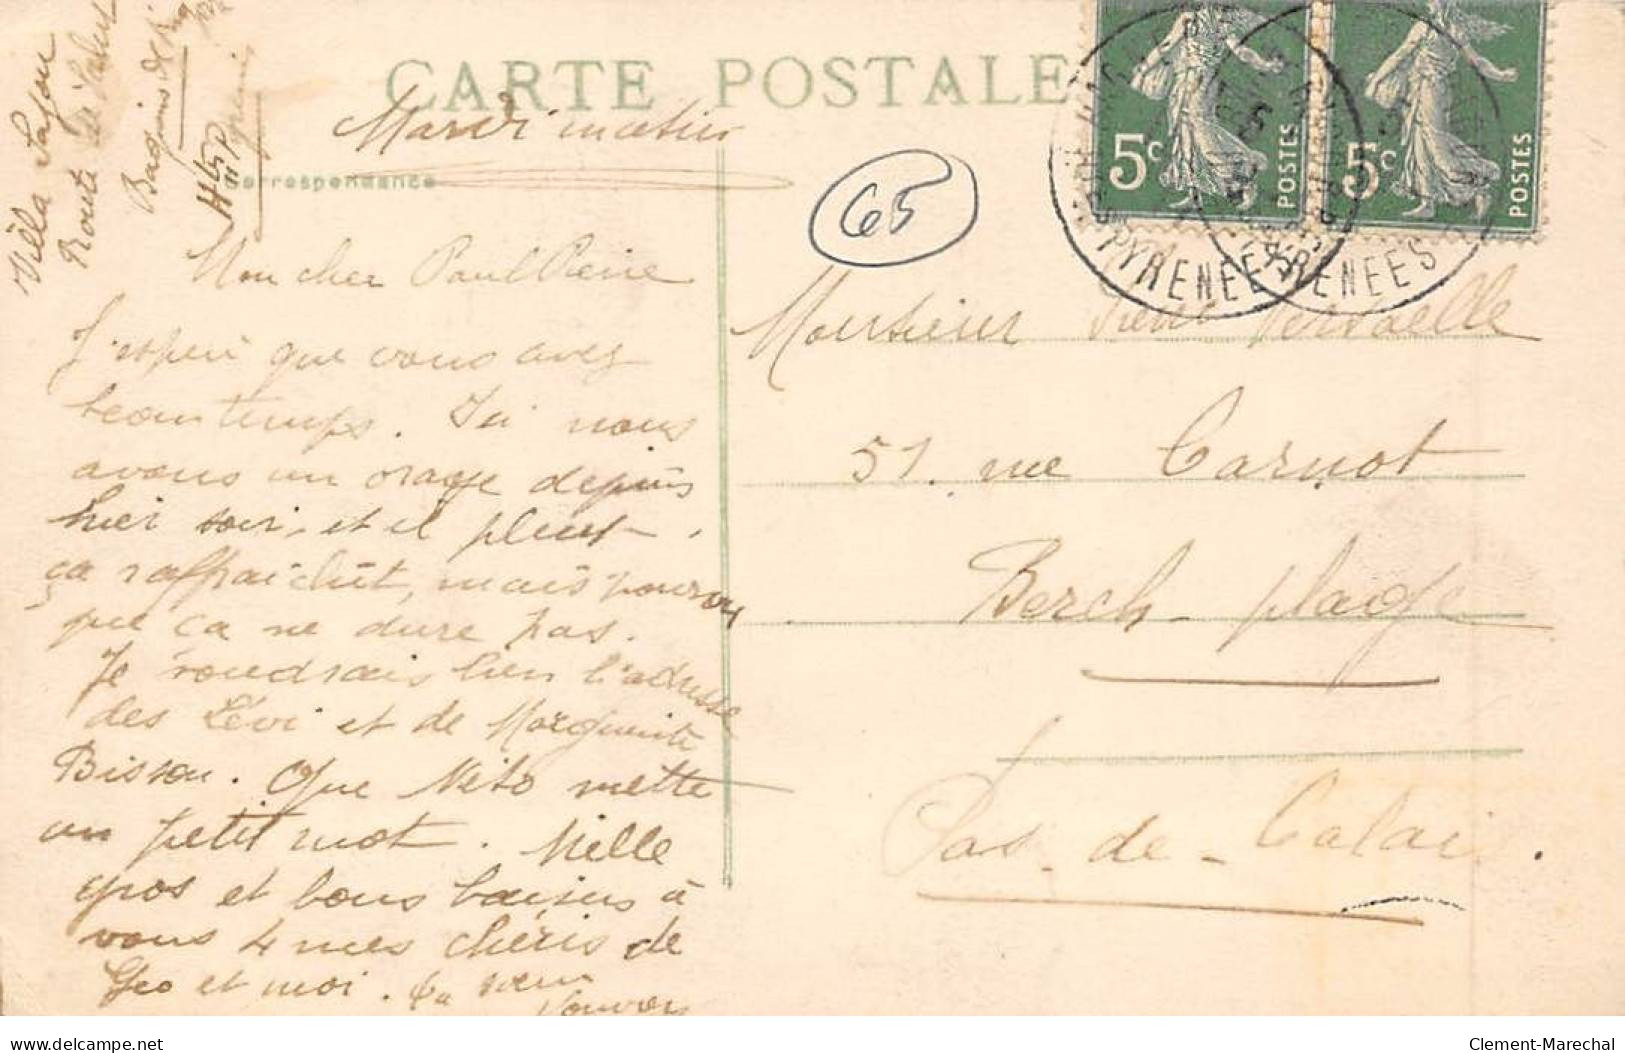 CARTE POSTALE
Mardi matin
Correspondance
Villa Lafon
Route de
Bagnères de
Htes P
65
5c POSTES
5c POSTES
PYRENEES
PYRENEES
Mon cher Paul Pierre
J'espère que vous avez
beau temps. Ici nous
avons un orage depuis
hier soir, et il pleut.
ça raffraichit, mais pourvu
que ça ne dure pas.
Je voudrais bien l'adresse
des Lévi et de Marguerite
Bisson. Que Neto mette
un petit mot. Mille
gros et bons baisers à
vous 4 mes chéris de
Geo et moi. Ta sœur
Monsieur Pierre
51. rue Carnot
Berck-plage
Pas-de-Calais.
delcampe.net
Clement-Marechal